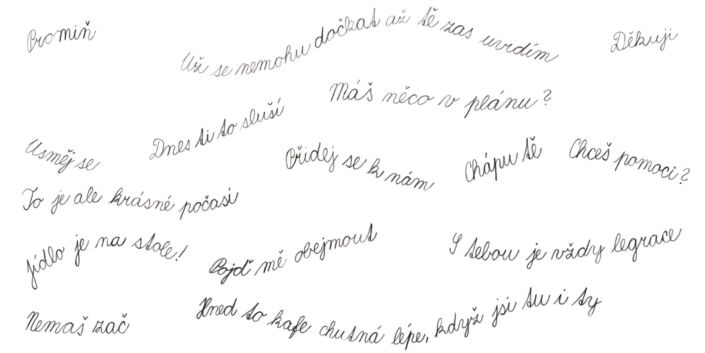 Promiň
Už se nemohu dočkat až tě zas uvidím
Děkuji
Usměj se
Dnes ti to sluší
Máš něco v plánu?
Přidej se k nám
Chápu tě
Chceš pomoci?
To je ale krásné počasí
Jídlo je na stole!
Pojď mě obejmout
S tebou je vždy legrace
Nemaš zač
Hned to kafe chutná lépe, když jsi tu i ty